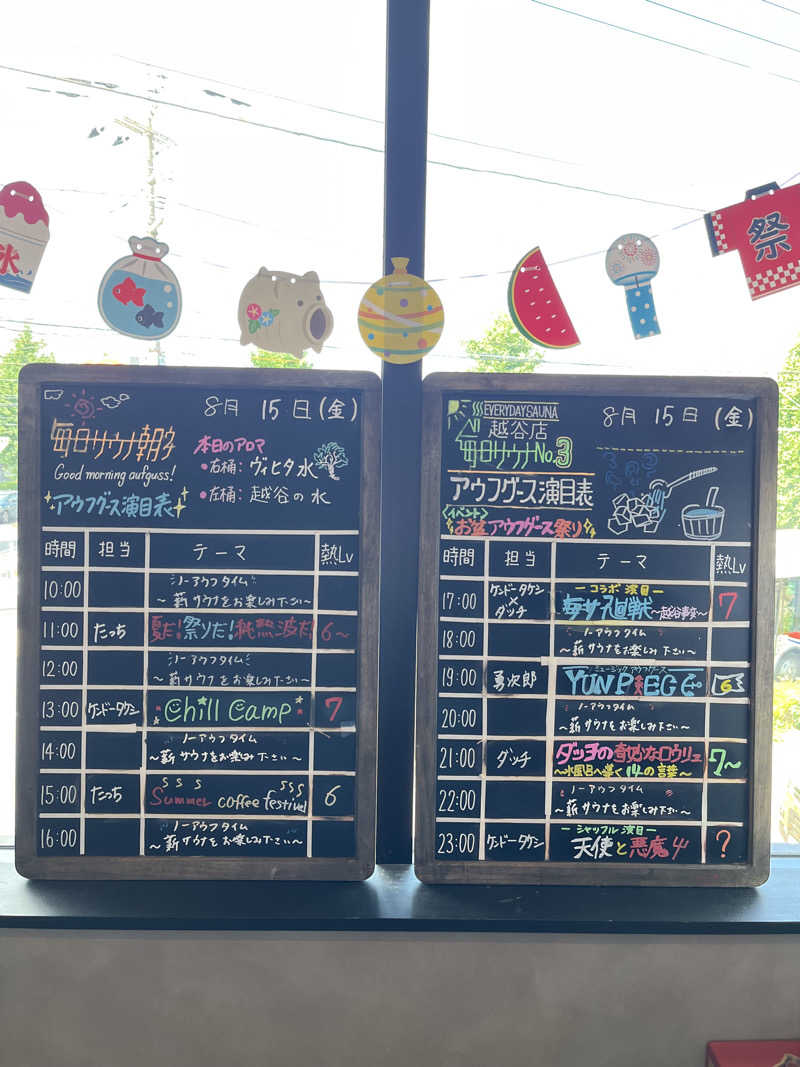 氷
祭
8月 15日(金)
毎日サウナ朝子
Good morning aufguss!
アウフグース演目表
本日のアロマ
・右桶: ヴィヒタ水
・左桶: 越谷の水
時間 担当 テーマ 熱Lv
10:00 ノーアウフタイム
~薪サウナをお楽しみ下さい~
11:00 たっち 夏だ!祭りだ!桃熱波だ! 6~
12:00 ノーアウフタイム
~薪サウナをお楽しみ下さい~
13:00 ケンドータケシ Chill Camp 7
14:00 ノーアウフタイム
~薪サウナをお楽しみ下さい~
15:00 たっち Summer coffee festival 6
16:00 ノーアウフタイム
~薪サウナをお楽しみ下さい~
EVERYDAY SAUNA
越谷店
毎日サウナNo.3
8月 15日 (金)
アウフグース演目表
<イベント>
お盆アウフグース祭り
時間 担当 テーマ 熱Lv
17:00 ケンドータケシ×ダッチ ーコラボ演目ー
毎サ廻戦~越谷事変~ 7
18:00 ノーアウフタイム
~薪サウナをお楽しみ下さい~
19:00 勇次郎 ミュージックアウフグース
YUNPIEGE 6
20:00 ノーアウフタイム
~薪サウナをお楽しみ下さい~
21:00 ダッチ ダッチの奇妙なロウリュ
~水風呂へ導く14の言葉~ 7~
22:00 ノーアウフタイム
~薪サウナをお楽しみ下さい~
23:00 ケンドータケシ ーシャッフル演目ー
天使と悪魔 ?